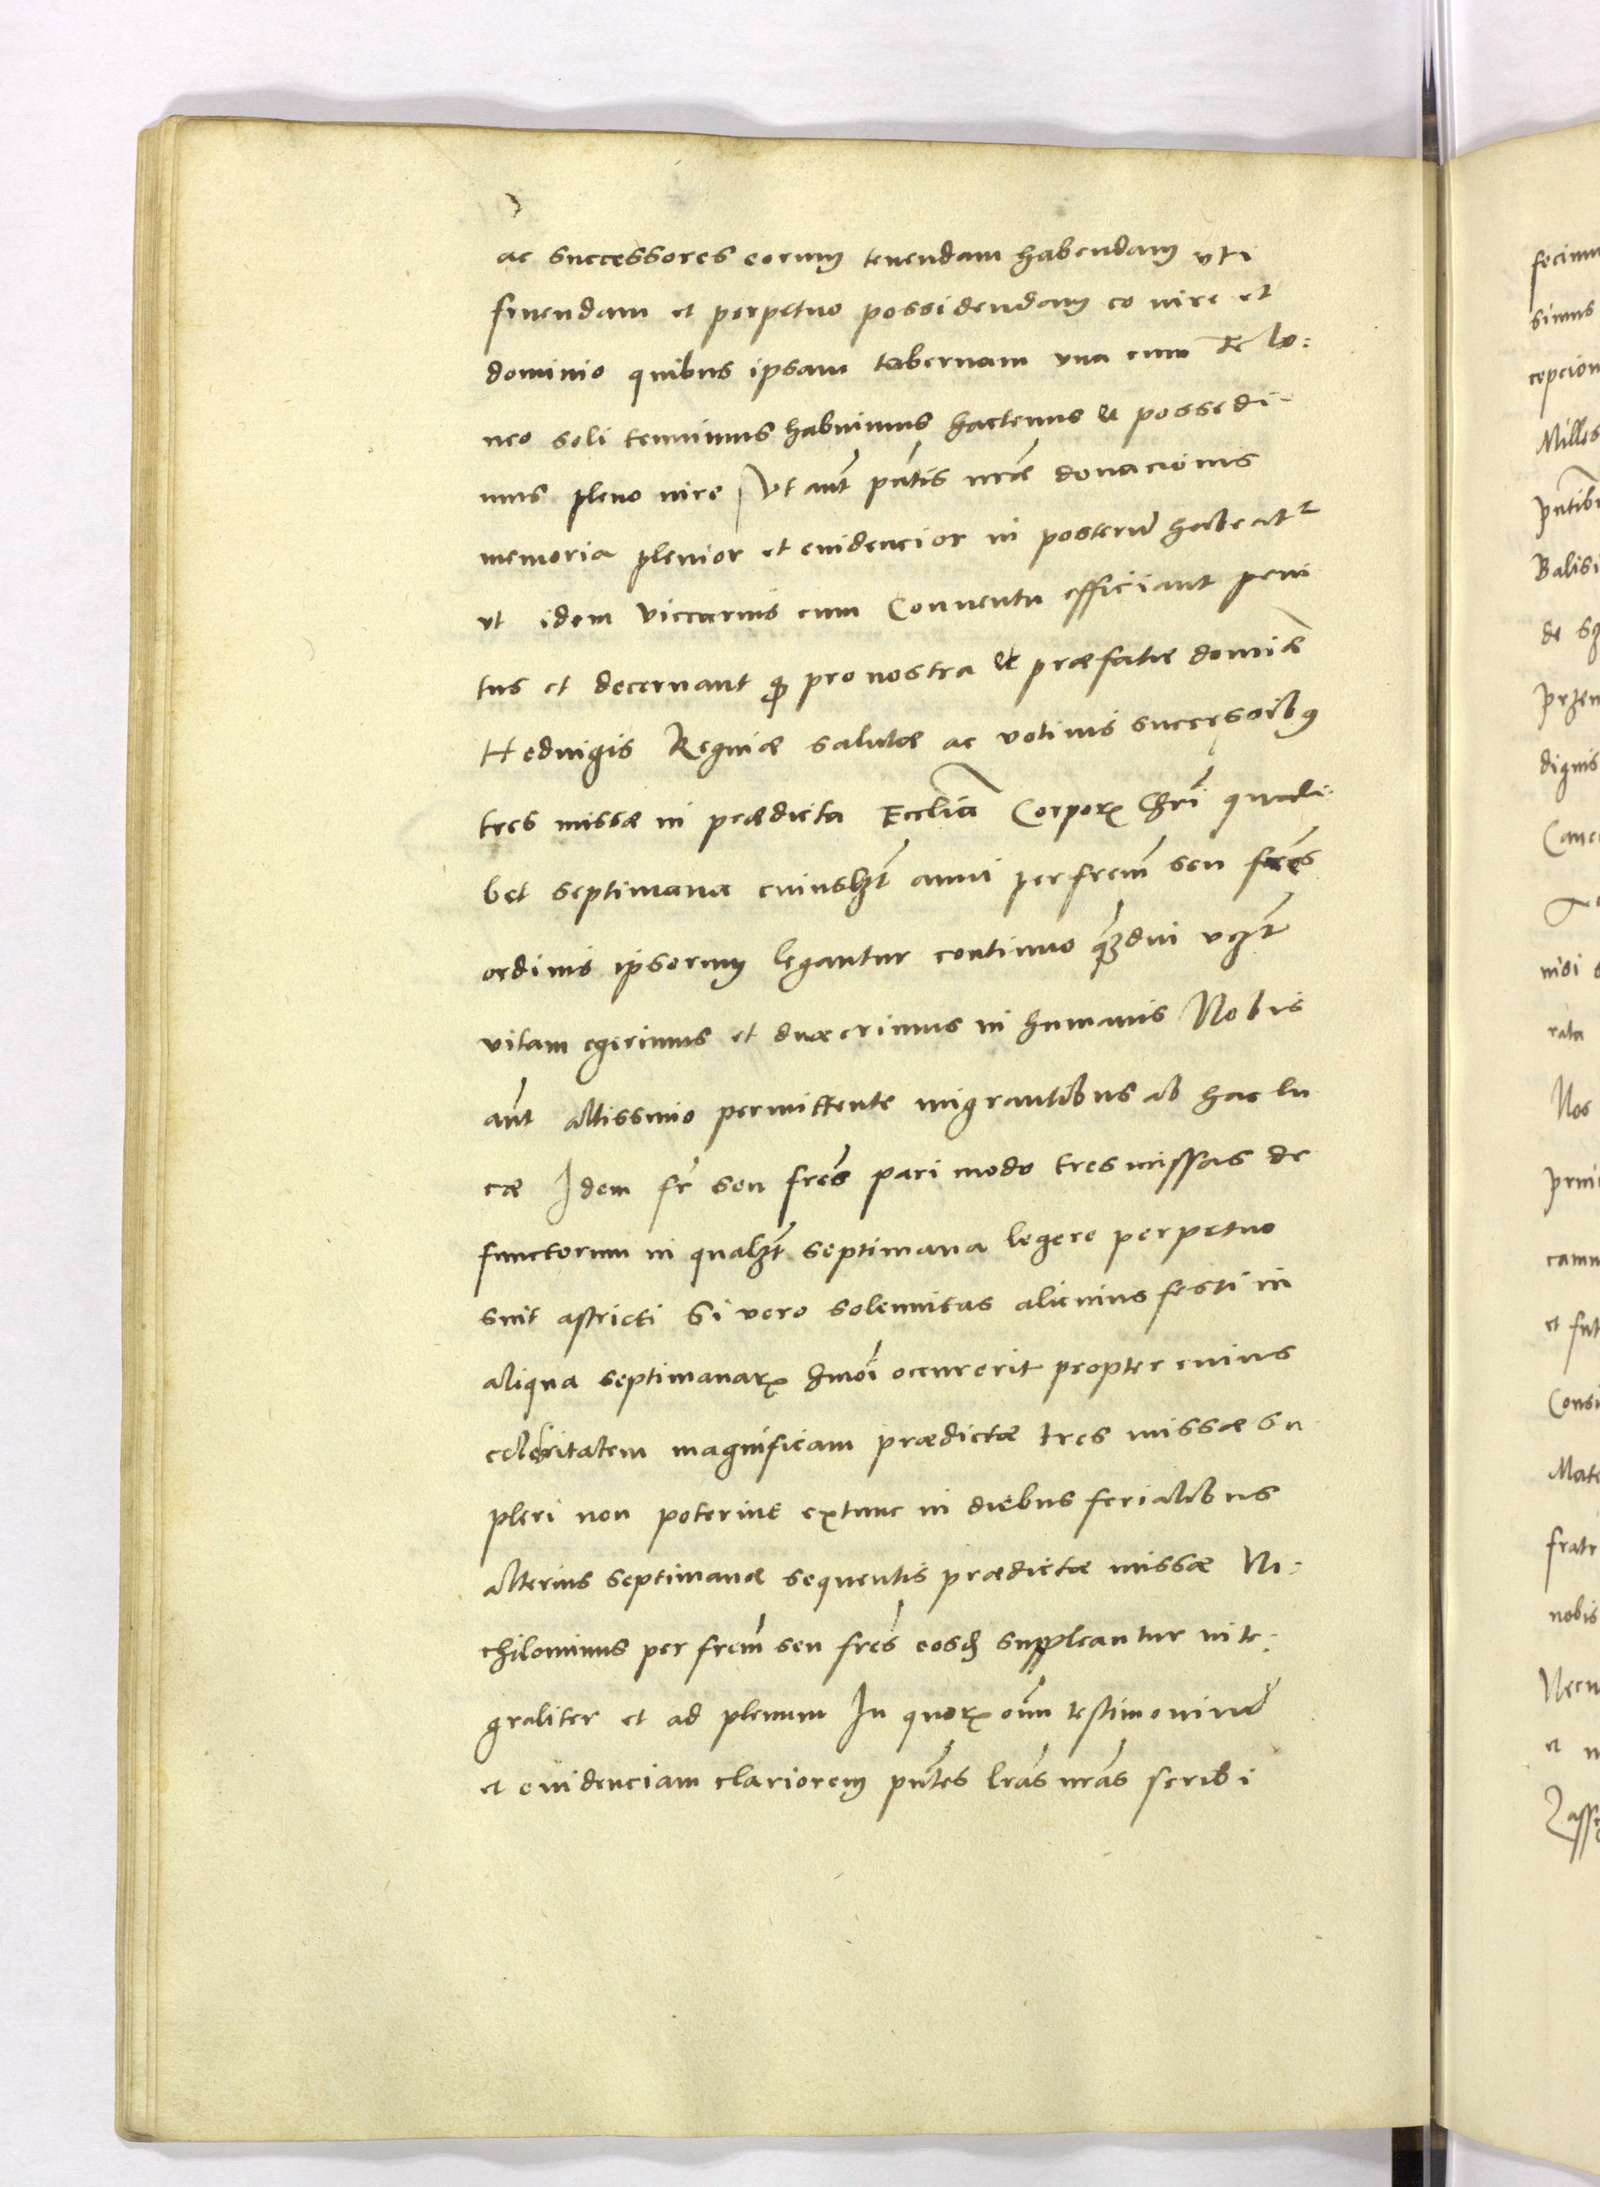 ac successores eorum tenendam habendam uti
fruendam et perpetuo possidendam eo iure et
dominio quibus ipsam tabernam una cum Te lo:
neo soli tenuimus habuimus hactenus & possedi-
mus pleno iure Ut aut pntis nrae donacionis
memoria plenior et evidencior in posterum habeatr
ut idem viccarius cum Conventu efficiant peni
tus et decernant qd pro nostra & praefatae domiae
Heduigis Reginae salutae ac votivis successoibq
tres missae in praedicta Ecclia Corporis Chri quali-
bet septimana cuiuslzt anni per frem seu fres
ordinis ipsorum legantur continuo qzdiu uczt
vitam egerimus et duxerimus in humanis Nobis
aut altissimo permittente migrantibus ab hac lu
cae Idem fr seu fres pari modo tres missas de
functorum in qualzt septimana legere perpetuo
sint astricti Si vero solennitas alicuius festi in
aliqua septimanarum hmoi occurerit propter cuius
celebritatem magnificam praedictae tres missae su
pleri non poterint extunc in diebus ferialibus
alterius septimanae sequentis praedictae missae Ni:
chilominus per frem seu fres eosd suppleantur inte:
graliter et ad plenum In quorum oim testimonium
et evidenciam clariorem pntes lras nras scribi

fecimu
simus
cepcion
Milles
pntibu
Balisi
de sg
przem
dignis
Canc
nisi s
rata
Nos
prmi
camu
et fut
Consi
Mate
fratr
nobis
Necn
et n